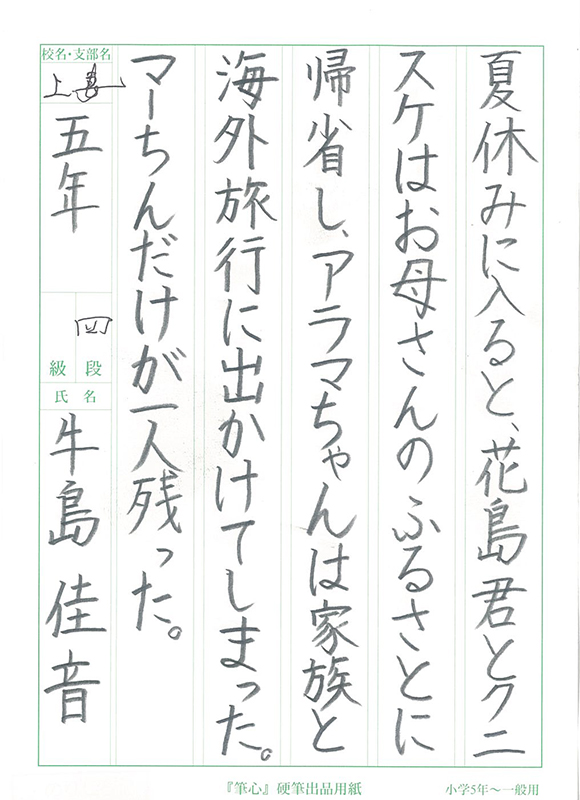 夏休みに入ると、花島君とクニ
スケはお母さんのふるさとに
帰省し、アラマちゃんは家族と
海外旅行に出かけてしまった。
マーちんだけが一人残った。
校名・支部名
上
五年
四
段
級
氏名
牛島佳音
『筆心』硬筆出品用紙
小学5年～一般用